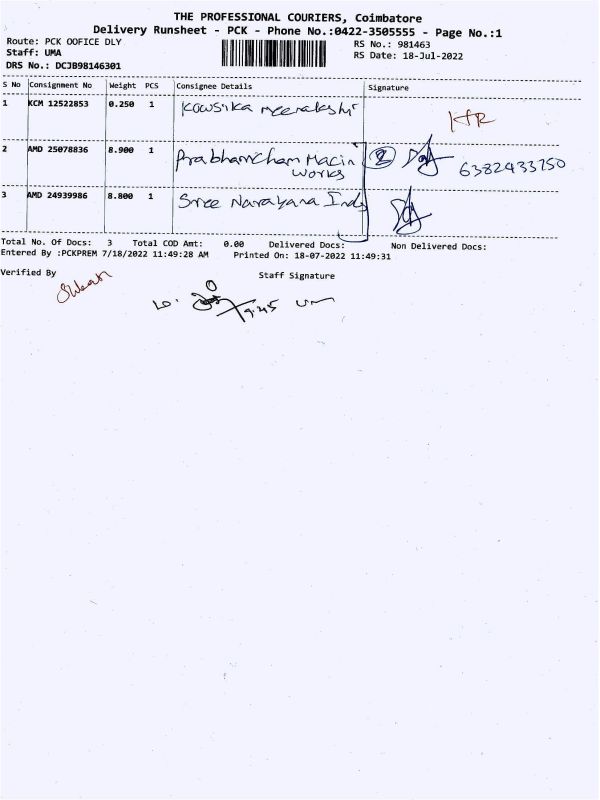 THE PROFESSIONAL COURIERS, Coimbatore
Delivery Runsheet - PCK - Phone No.:0422-3505555 - Page No.:1
Route: PCK OOFICE DLY RS No.: 981463
Staff: UMA RS Date: 18-Jul-2022
DRS No.: DCJB98146301
S No Consignment No Weight PCS Consignee Details Signature
1 KCM 12522853 0.250 1 Kowsika meenakshi
2 AMD 25078836 8.900 1 Prabhamcham Macin
Works 2 6382433750
3 AMD 24939986 8.800 1 Sree Narayana Inds
Total No. Of Docs: 3 Total COD Amt: 0.00 Delivered Docs: Non Delivered Docs:
Entered By :PCKPREM 7/18/2022 11:49:28 AM Printed On: 18-07-2022 11:49:31
Verified By Staff Signature
9.45